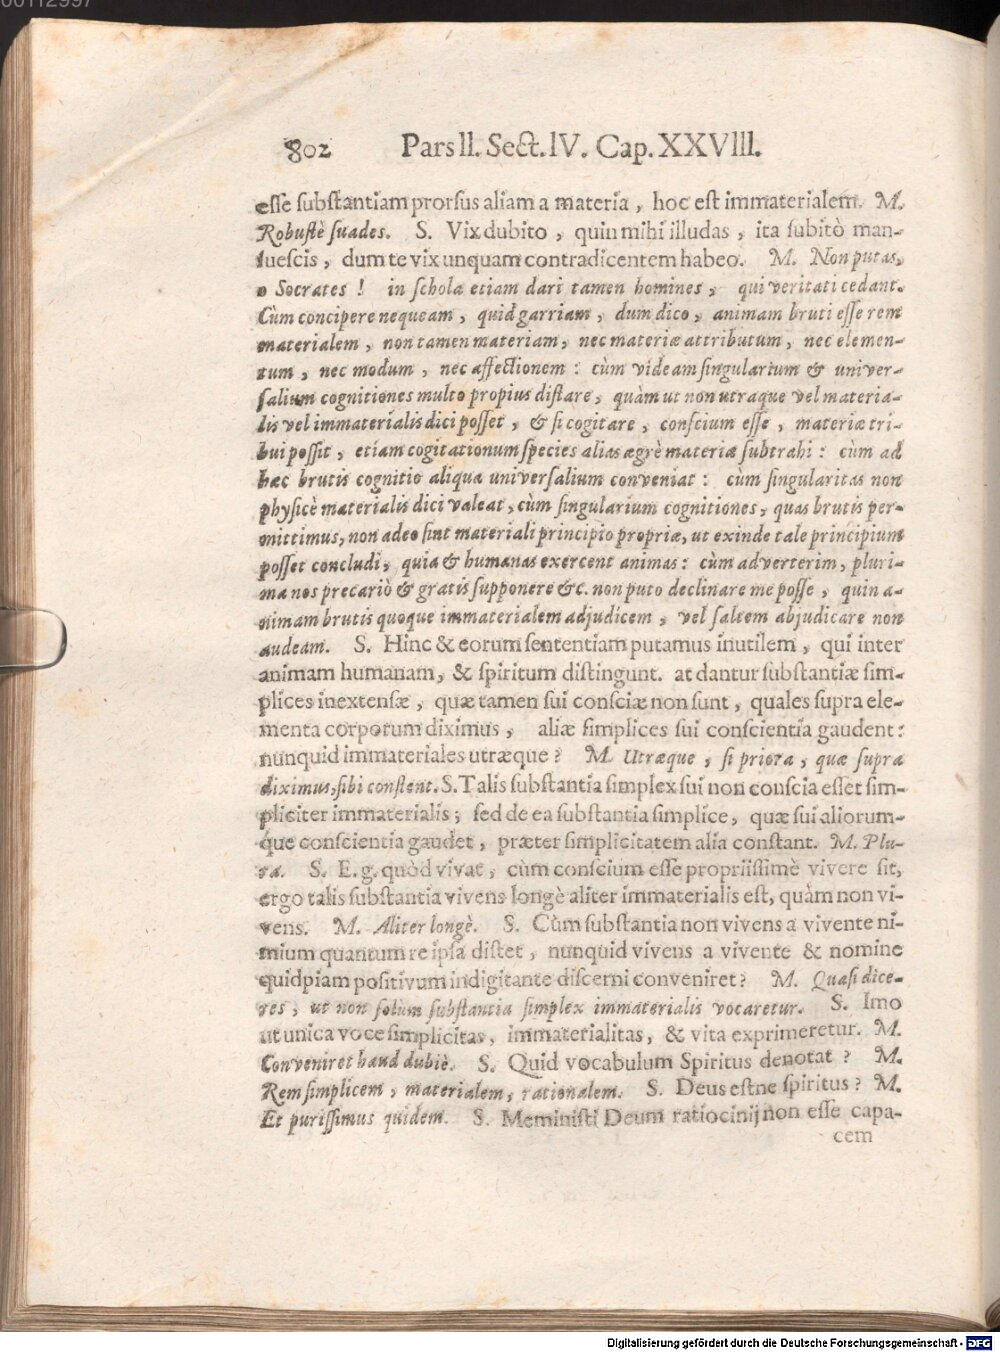 00112997
802 Pars II. Sect. IV. Cap. XXVIII.
esse substantiam prorsus aliam a materia, hoc est immaterialem. M.
Robustè suades. S. Vix dubito, quin mihi illudas, ita subitò man-
suescis, dum te vix unquam contradicentem habeo. M. Non putas,
o Socrates! in schola etiam dari tamen homines, qui veritati cedant.
Cùm concipere nequeam, quid garriam, dum dico, animam bruti esse rem
materialem, non tamen materiam, nec materiæ attributum, nec elemen-
tum, nec modum, nec affectionem: cùm videam singularium & univer-
salium cognitiones multo propius distare, quàm ut non utraque vel materia-
lis vel immaterialis dici posset, & si cogitare, conscium esse, materiæ tri-
bui possit, etiam cogitationum species alias ægrè materiæ subtrahi: cùm ad
hæc brutis cognitio aliqua universalium conveniat: cùm singularitas non
physicè materialis dici valeat, cùm singularium cognitiones, quas brutis per-
mittimus, non adeo sint materiali principio propriæ, ut exinde tale principium
posset concludi, quia & humanas exercent animas: cùm adverterim, pluri-
ma nos precariò & gratis supponere &c. non puto declinare me posse, quin a-
nimam brutis quoque immaterialem adjudicem, vel saltem abjudicare non
audeam. S. Hinc & eorum sententiam putamus inutilem, qui inter
animam humanam, & spiritum distingunt. at dantur substantiæ sim-
plices inextensæ, quæ tamen sui consciæ non sunt, quales supra ele-
menta corporum diximus, aliæ simplices sui conscientia gaudent:
nunquid immateriales utræque? M. Utræque, si priora, quæ supra
diximus, sibi constent. S. Talis substantia simplex sui non conscia esset sim-
pliciter immaterialis; sed de ea substantia simplice, quæ sui aliorum-
que conscientia gaudet, præter simplicitatem alia constant. M. Plu-
ra. S. E. g. quòd vivat, cùm conscium esse propriissimè vivere sit,
ergo talis substantia vivens longè aliter immaterialis est, quàm non vi-
vens. M. Aliter longè. S. Cùm substantia non vivens a vivente ni-
mium quantum re ipsa distet, nunquid vivens a vivente & nomine
quidpiam positivum indigitante discerni conveniret? M. Quasi dice-
res, ut non solum substantia simplex immaterialis vocaretur. S. Imo
ut unica voce simplicitas, immaterialitas, & vita exprimeretur. M.
Conveniret haud dubiè. S. Quid vocabulum Spiritus denotat? M.
Rem simplicem, materialem, rationalem. S. Deus estne spiritus? M.
Et purissimus quidem. S. Meministi Deum ratiocinij non esse capa-
cem
Digitalisierung gefördert durch die Deutsche Forschungsgemeinschaft - DFG